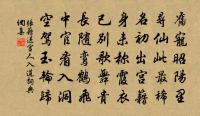 舊寵昭陽里
尋仙此最稀
名初出宮籍
身未稱霞衣
已別歌舞貴
長隨鸞鶴飛
中官看入洞
空駕玉輪歸
張籍送宮人入道詞典
網集